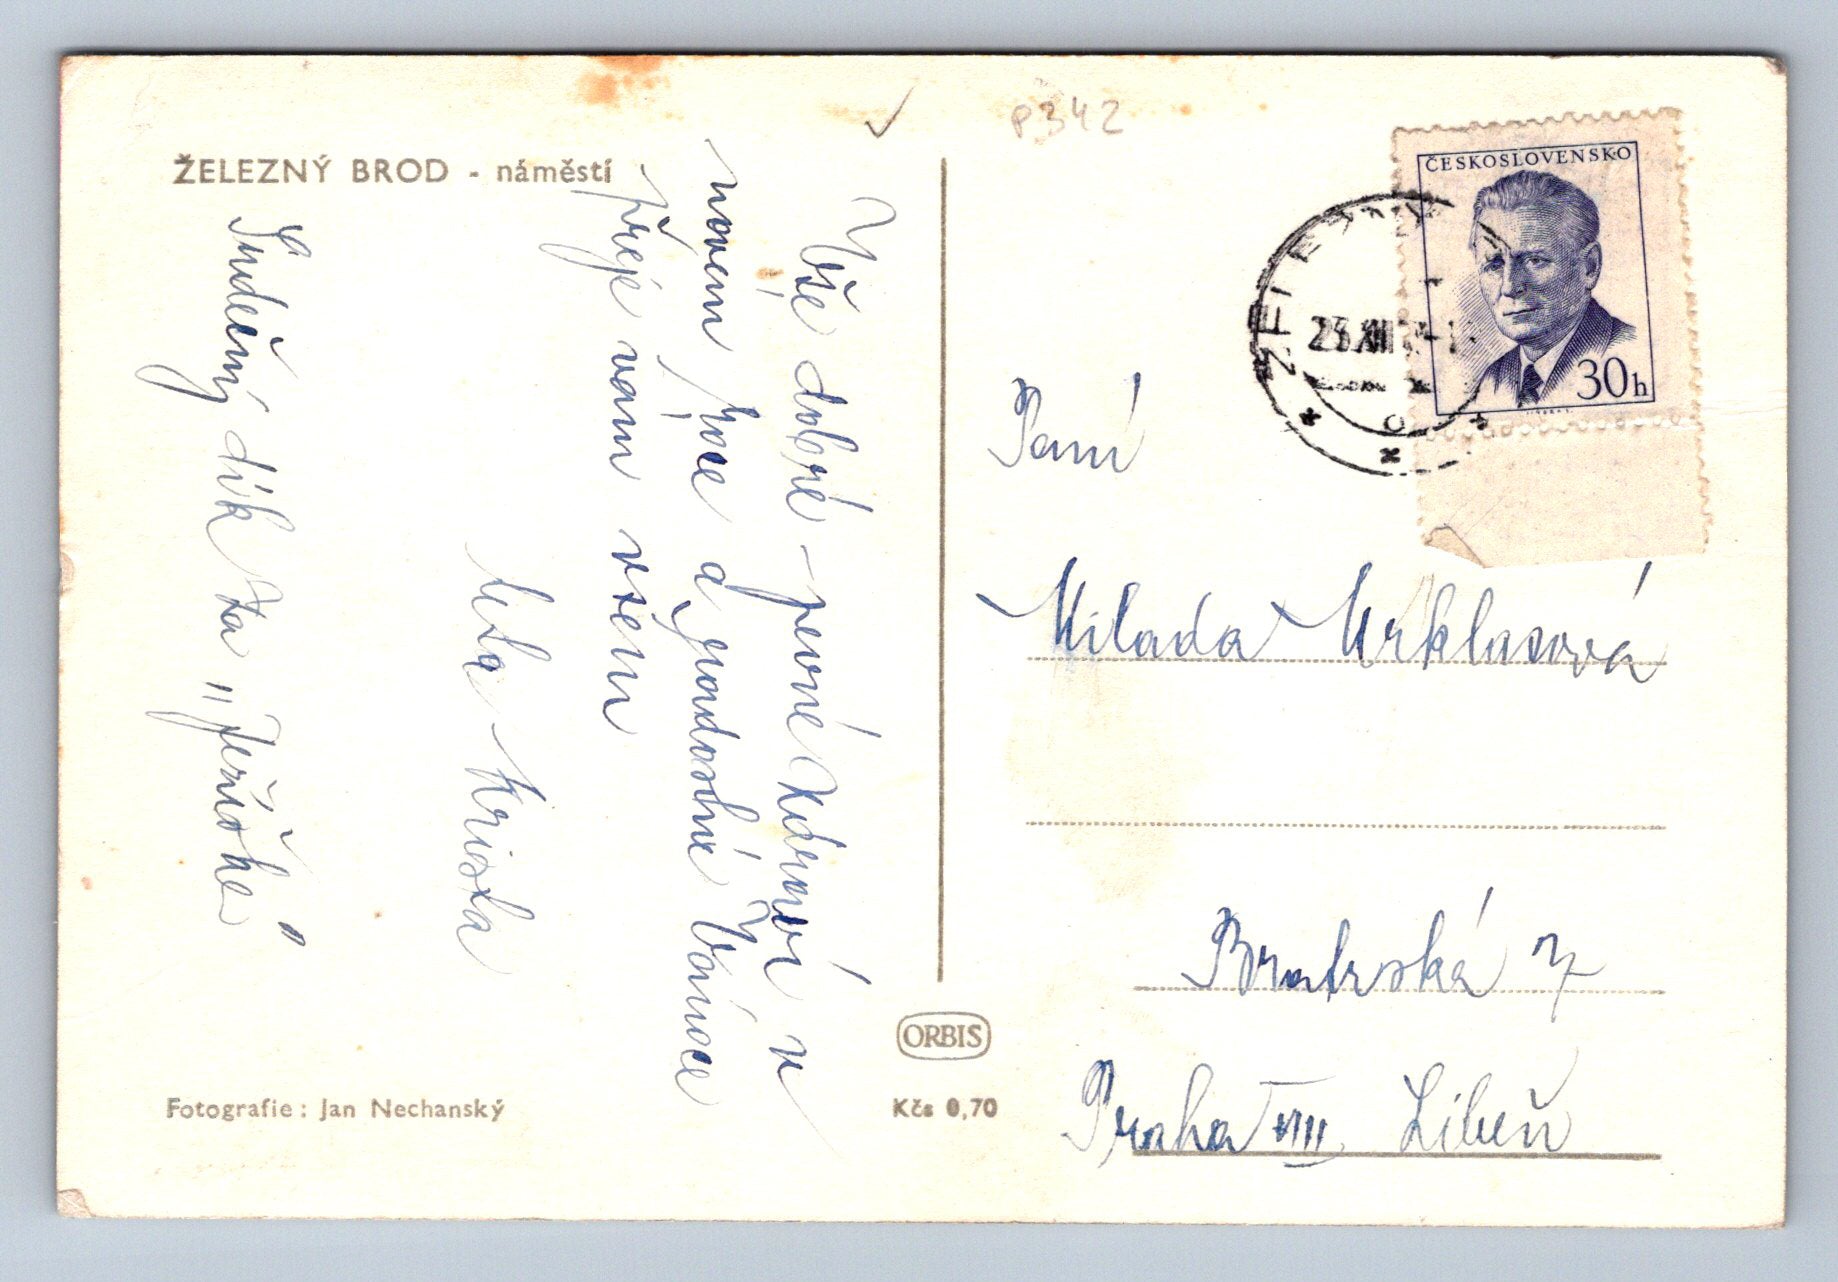 ŽELEZNÝ BROD - náměstí
P342
Vše dobré - pevné zdraví v
novém roce a radostné Vánoce
přeje vám všem
Krista
Srdečný dík za „Ježíška"
ČESKOSLOVENSKO
30h
23.XII
Paní
Milada Urklasová
Bratrská 7
Praha VIII Libeň
ORBIS
Kčs 0,70
Fotografie: Jan Nechanský